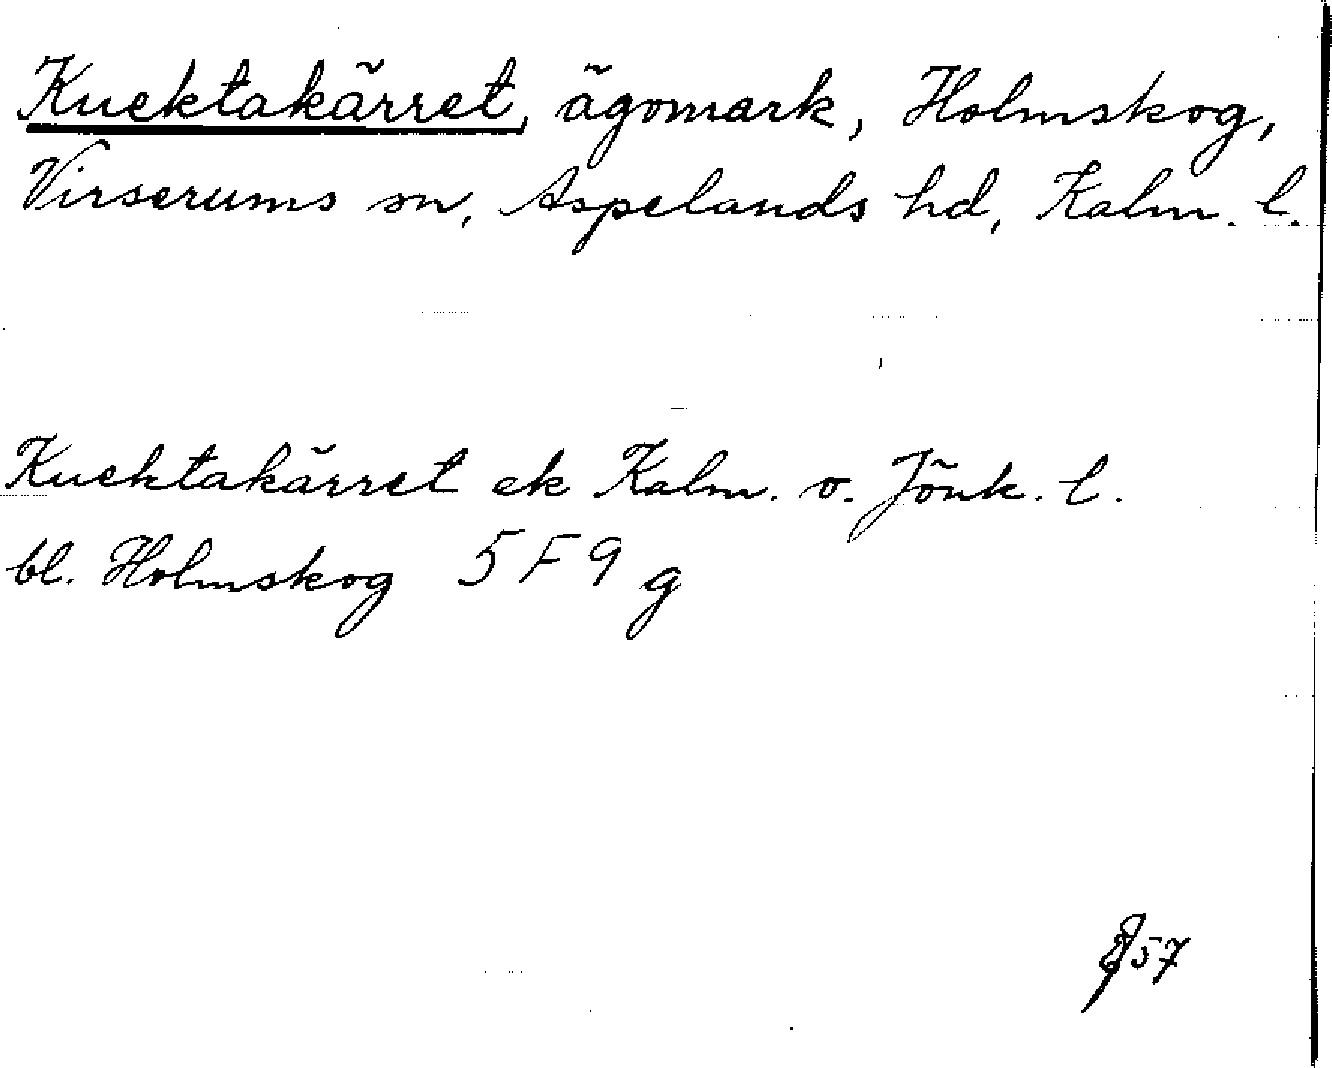 Knektakärret, ägomark, Holmskog,
Virserums sn, Aspelands hd, Kalm. l.
Knektakärret ek Kalm. o. Jönk. l.
bl. Holmskog 5 F 9 g
57